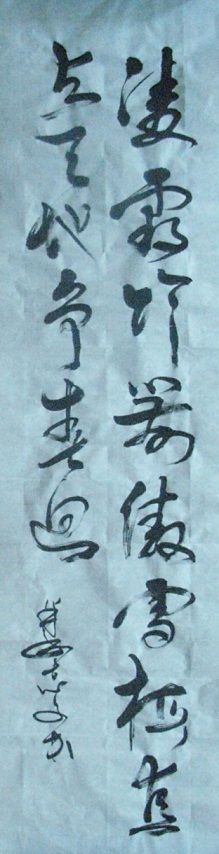 凌霜竹箭傲雪梅直
与天地争春迴
书